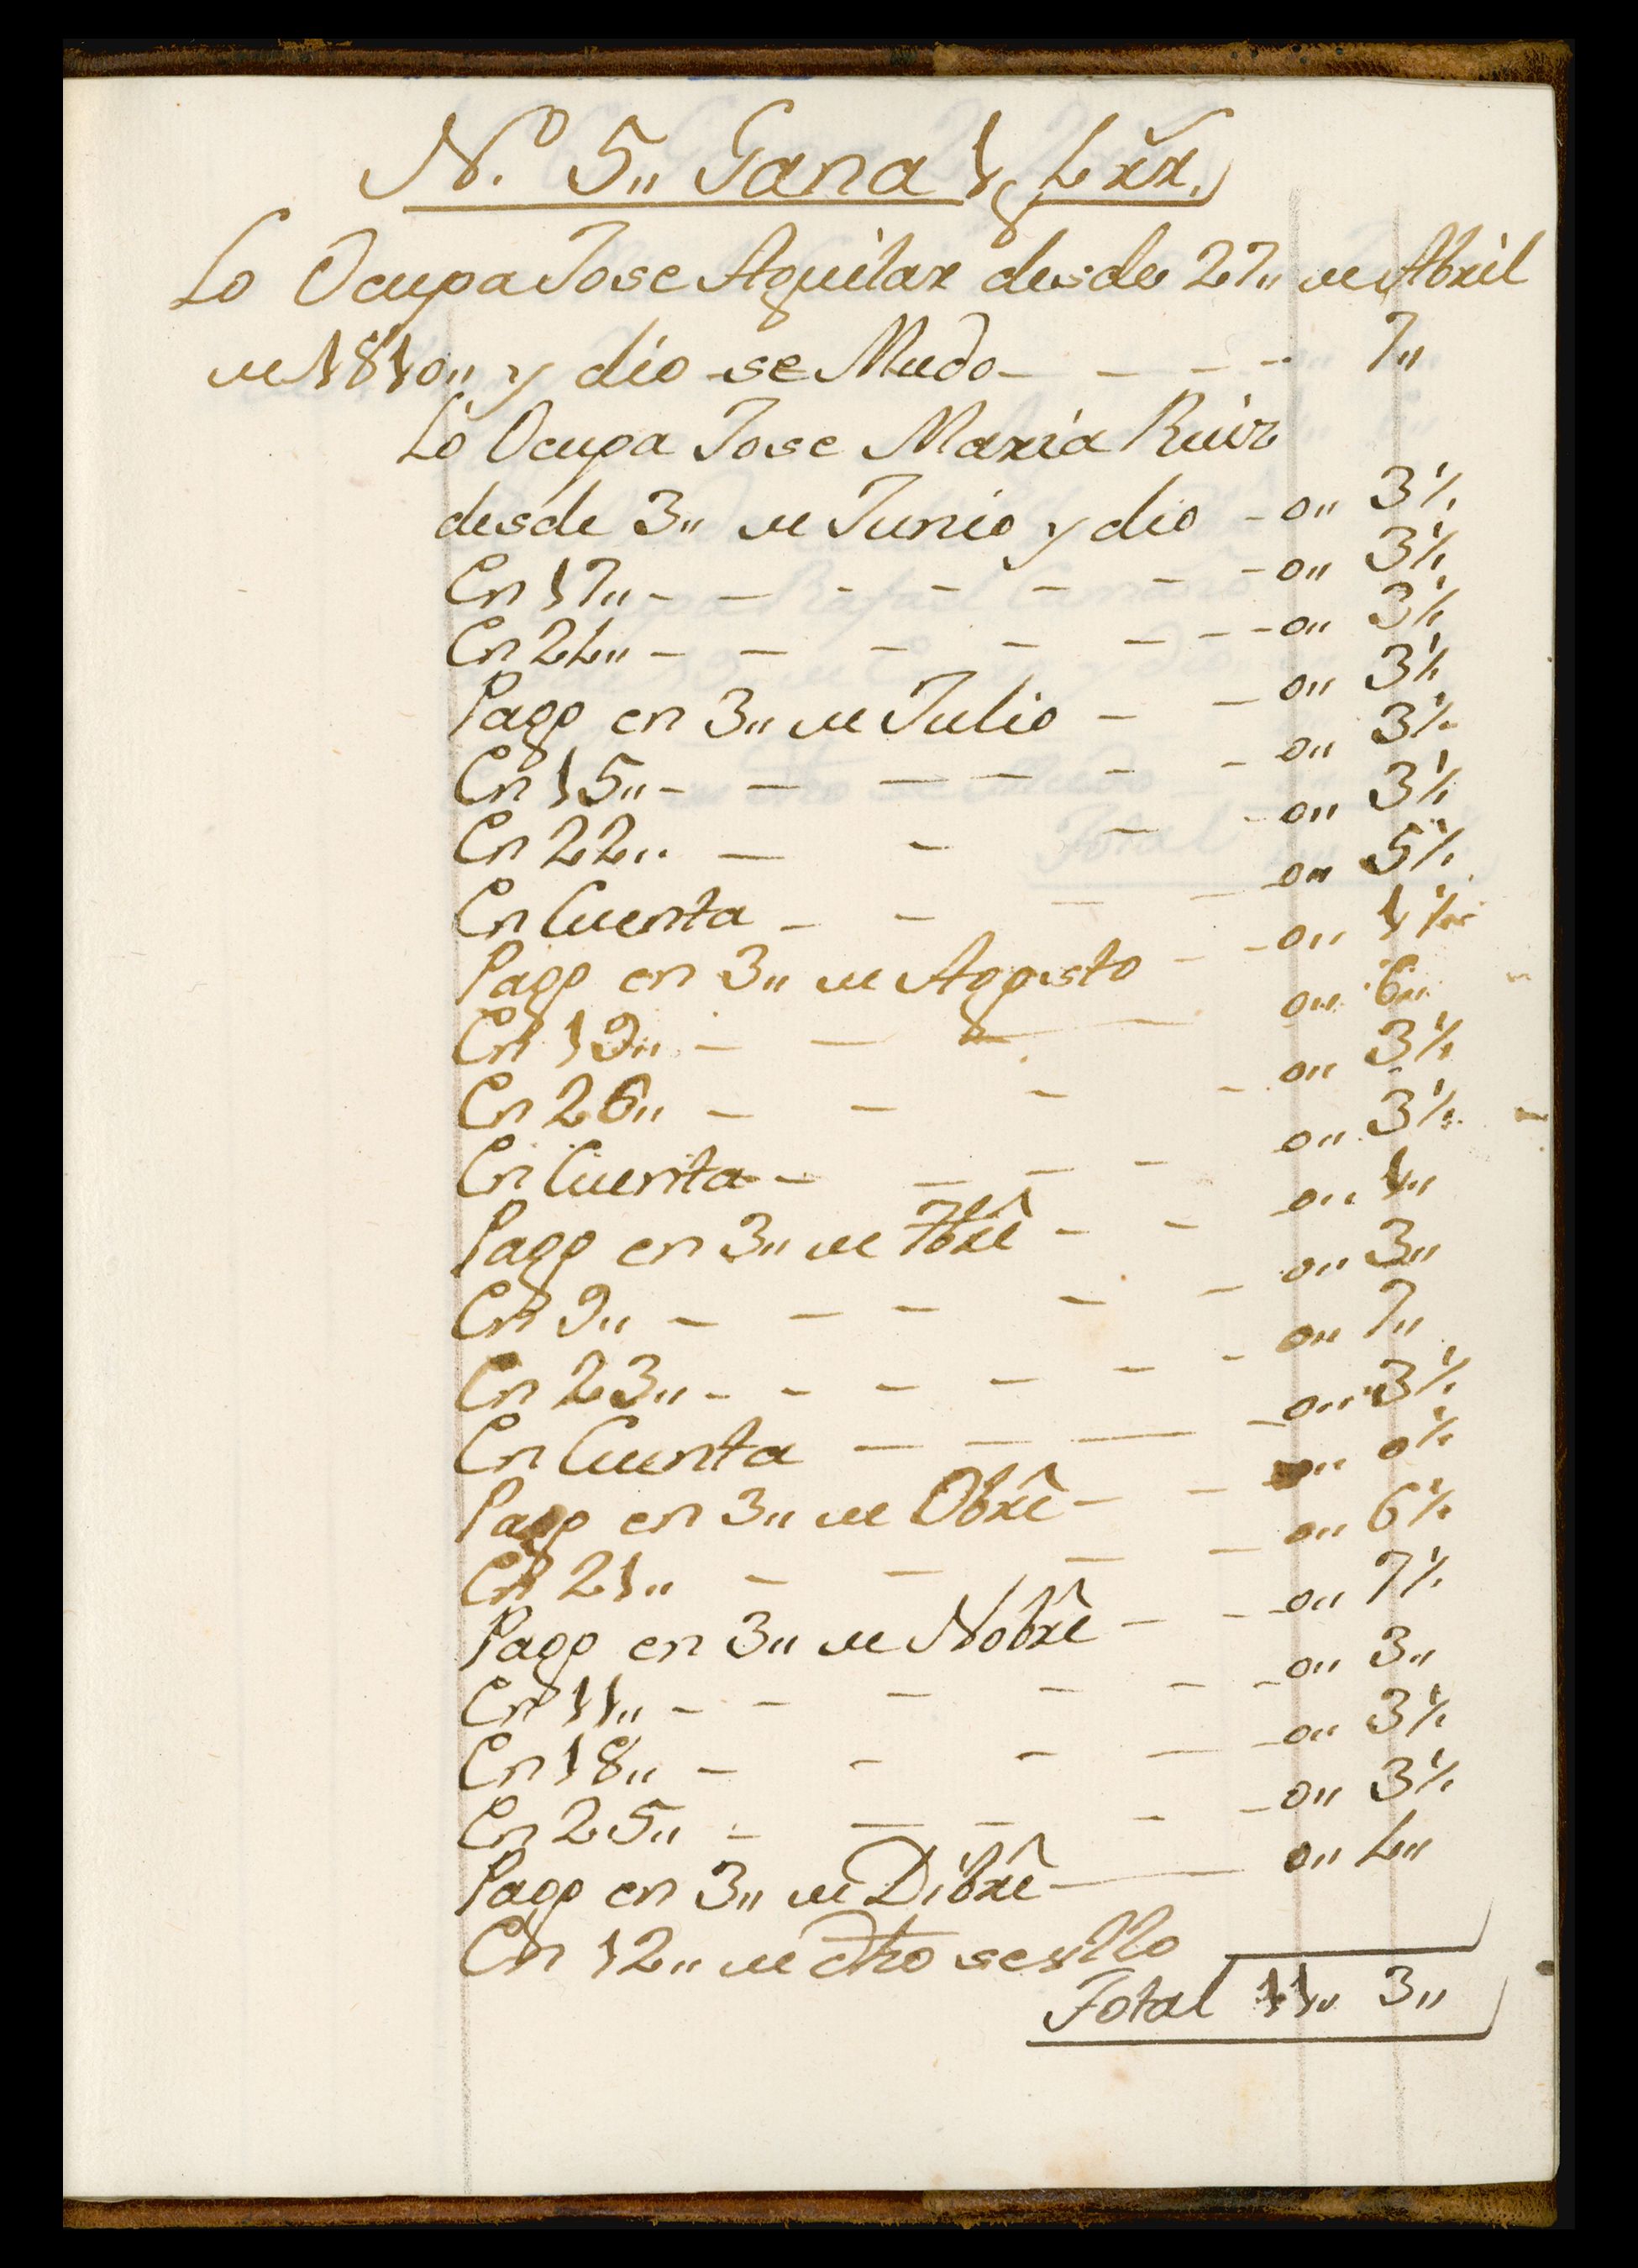 N.º 5,, Gana 1 p 4 rr.
Lo Ocupa Jose Aguilar desde 27,, de Abril
de 1810,, y dio se Mudo - - - - 7,,
Lo Ocupa Jose Maria Ruiz
desde 3,, de Junio y dio - 0,, 3 1/2
En 17,, - - - - - - - 0,, 3 1/2
En 24,, - - - - - - - 0,, 3 1/2
Pago en 3,, de Julio - - 0,, 3 1/2
En 15,, - - - - - - 0,, 3 1/2
En 22,, - - - - 0,, 3 1/2
En Cuenta - - - - 0,, 5 1/2
Pago en 3,, de Agosto - - 0,, 1 1/2
En 19,, - - - - 0,, 6,,
En 26,, - - - - 0,, 3 1/2
En Cuenta - - - - 0,, 3 1/2
Pago en 3,, de 7bre - - 0,, 1,,
En 9,, - - - - - 0,, 3,,
En 23,, - - - - - - 0,, 7,,
En Cuenta - - - - 0,, 3 1/2
Pago en 3,, de Obre - - 0,, 0 1/2
En 21,, - - - - 0,, 6 1/2
Pago en 3,, de Nobre - - 0,, 7 1/2
En 11,, - - - - - - 0,, 3,,
En 18,, - - - - - 0,, 3 1/2
En 25,, - - - - - 0,, 3 1/2
Pago en 3,, de Dibre - 0,, 4,,
En 12,, de dho sesllo
Total 11,, 3,,